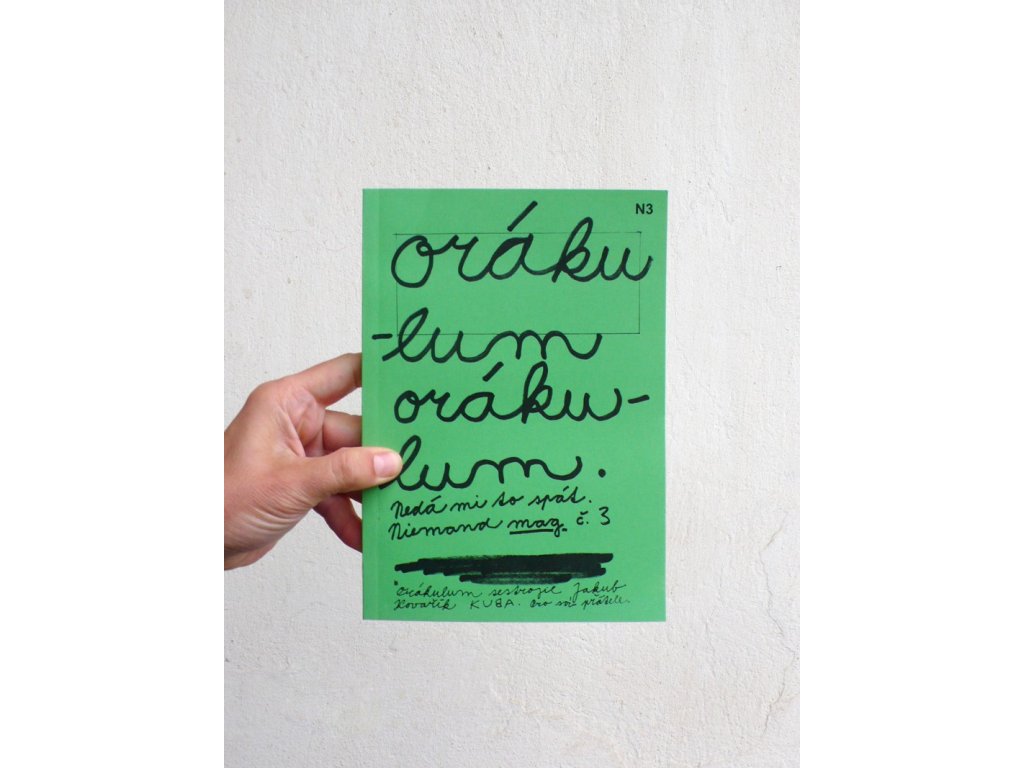 N3
oráku
-lum
oráku-
lum.
Nedá mi to spát.
Niemand mag. č. 3
orákulum sestrojil Jakub
Kovařík KUBA. pro své přátele.